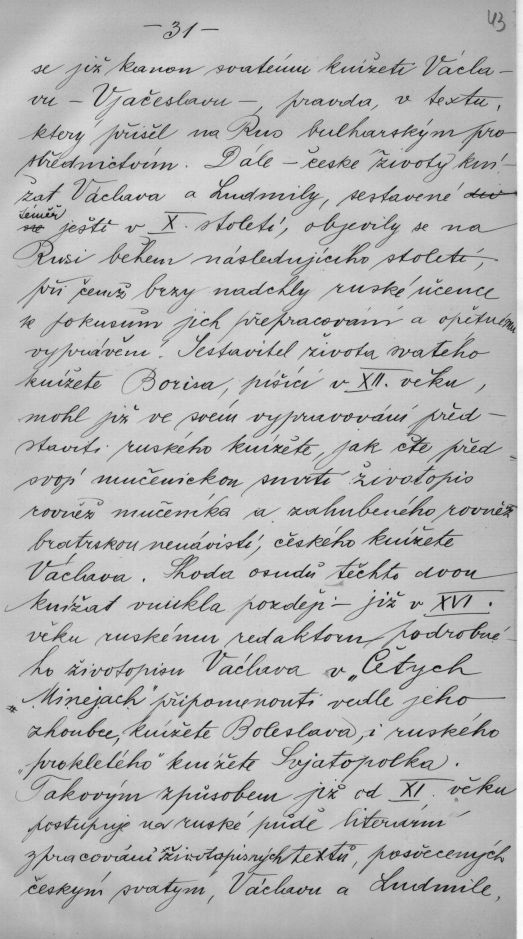 43
— 31 —
se již kanon svatému knížeti Václa-
vu – Vjačeslavu –, pravda, v textu,
ktery přišel na Rus bulharským pro
střednictvím. Dále – české životy kní-
žat Václava a Ludmily, sestavené
téměř
ještě v X. století, objevily se na
Rusi během následujícího století,
při čemž brzy nadchly ruské učence
k pokusům jich přepracování a opětnému
vyprávění. Sestavitel života svatého
knížete Borisa, píšící v XII. věku,
mohl již ve svém vypravování před-
staviti ruského knížete, jak čte před
svojí mučenickou smrtí životopis
rovněž mučeníka a zahubeného rovněž
bratrskou nenávistí, českého knížete
Václava. Shoda osudů těchto dvou
knížat vnukla později – již v XVI.
věku ruskému redaktoru podrobné-
ho životopisu Václava v „Čtych
Minejach" připomenouti vedle jeho
zhoubce, knížete Boleslava, i ruského
„prokletého" knížete Svjatopolka.
Takovým způsobem již od XI. věku
postupuje na ruské půdě literární
zpracování životopisných textů, posvěcených
českým svatým, Václavu a Ludmile,